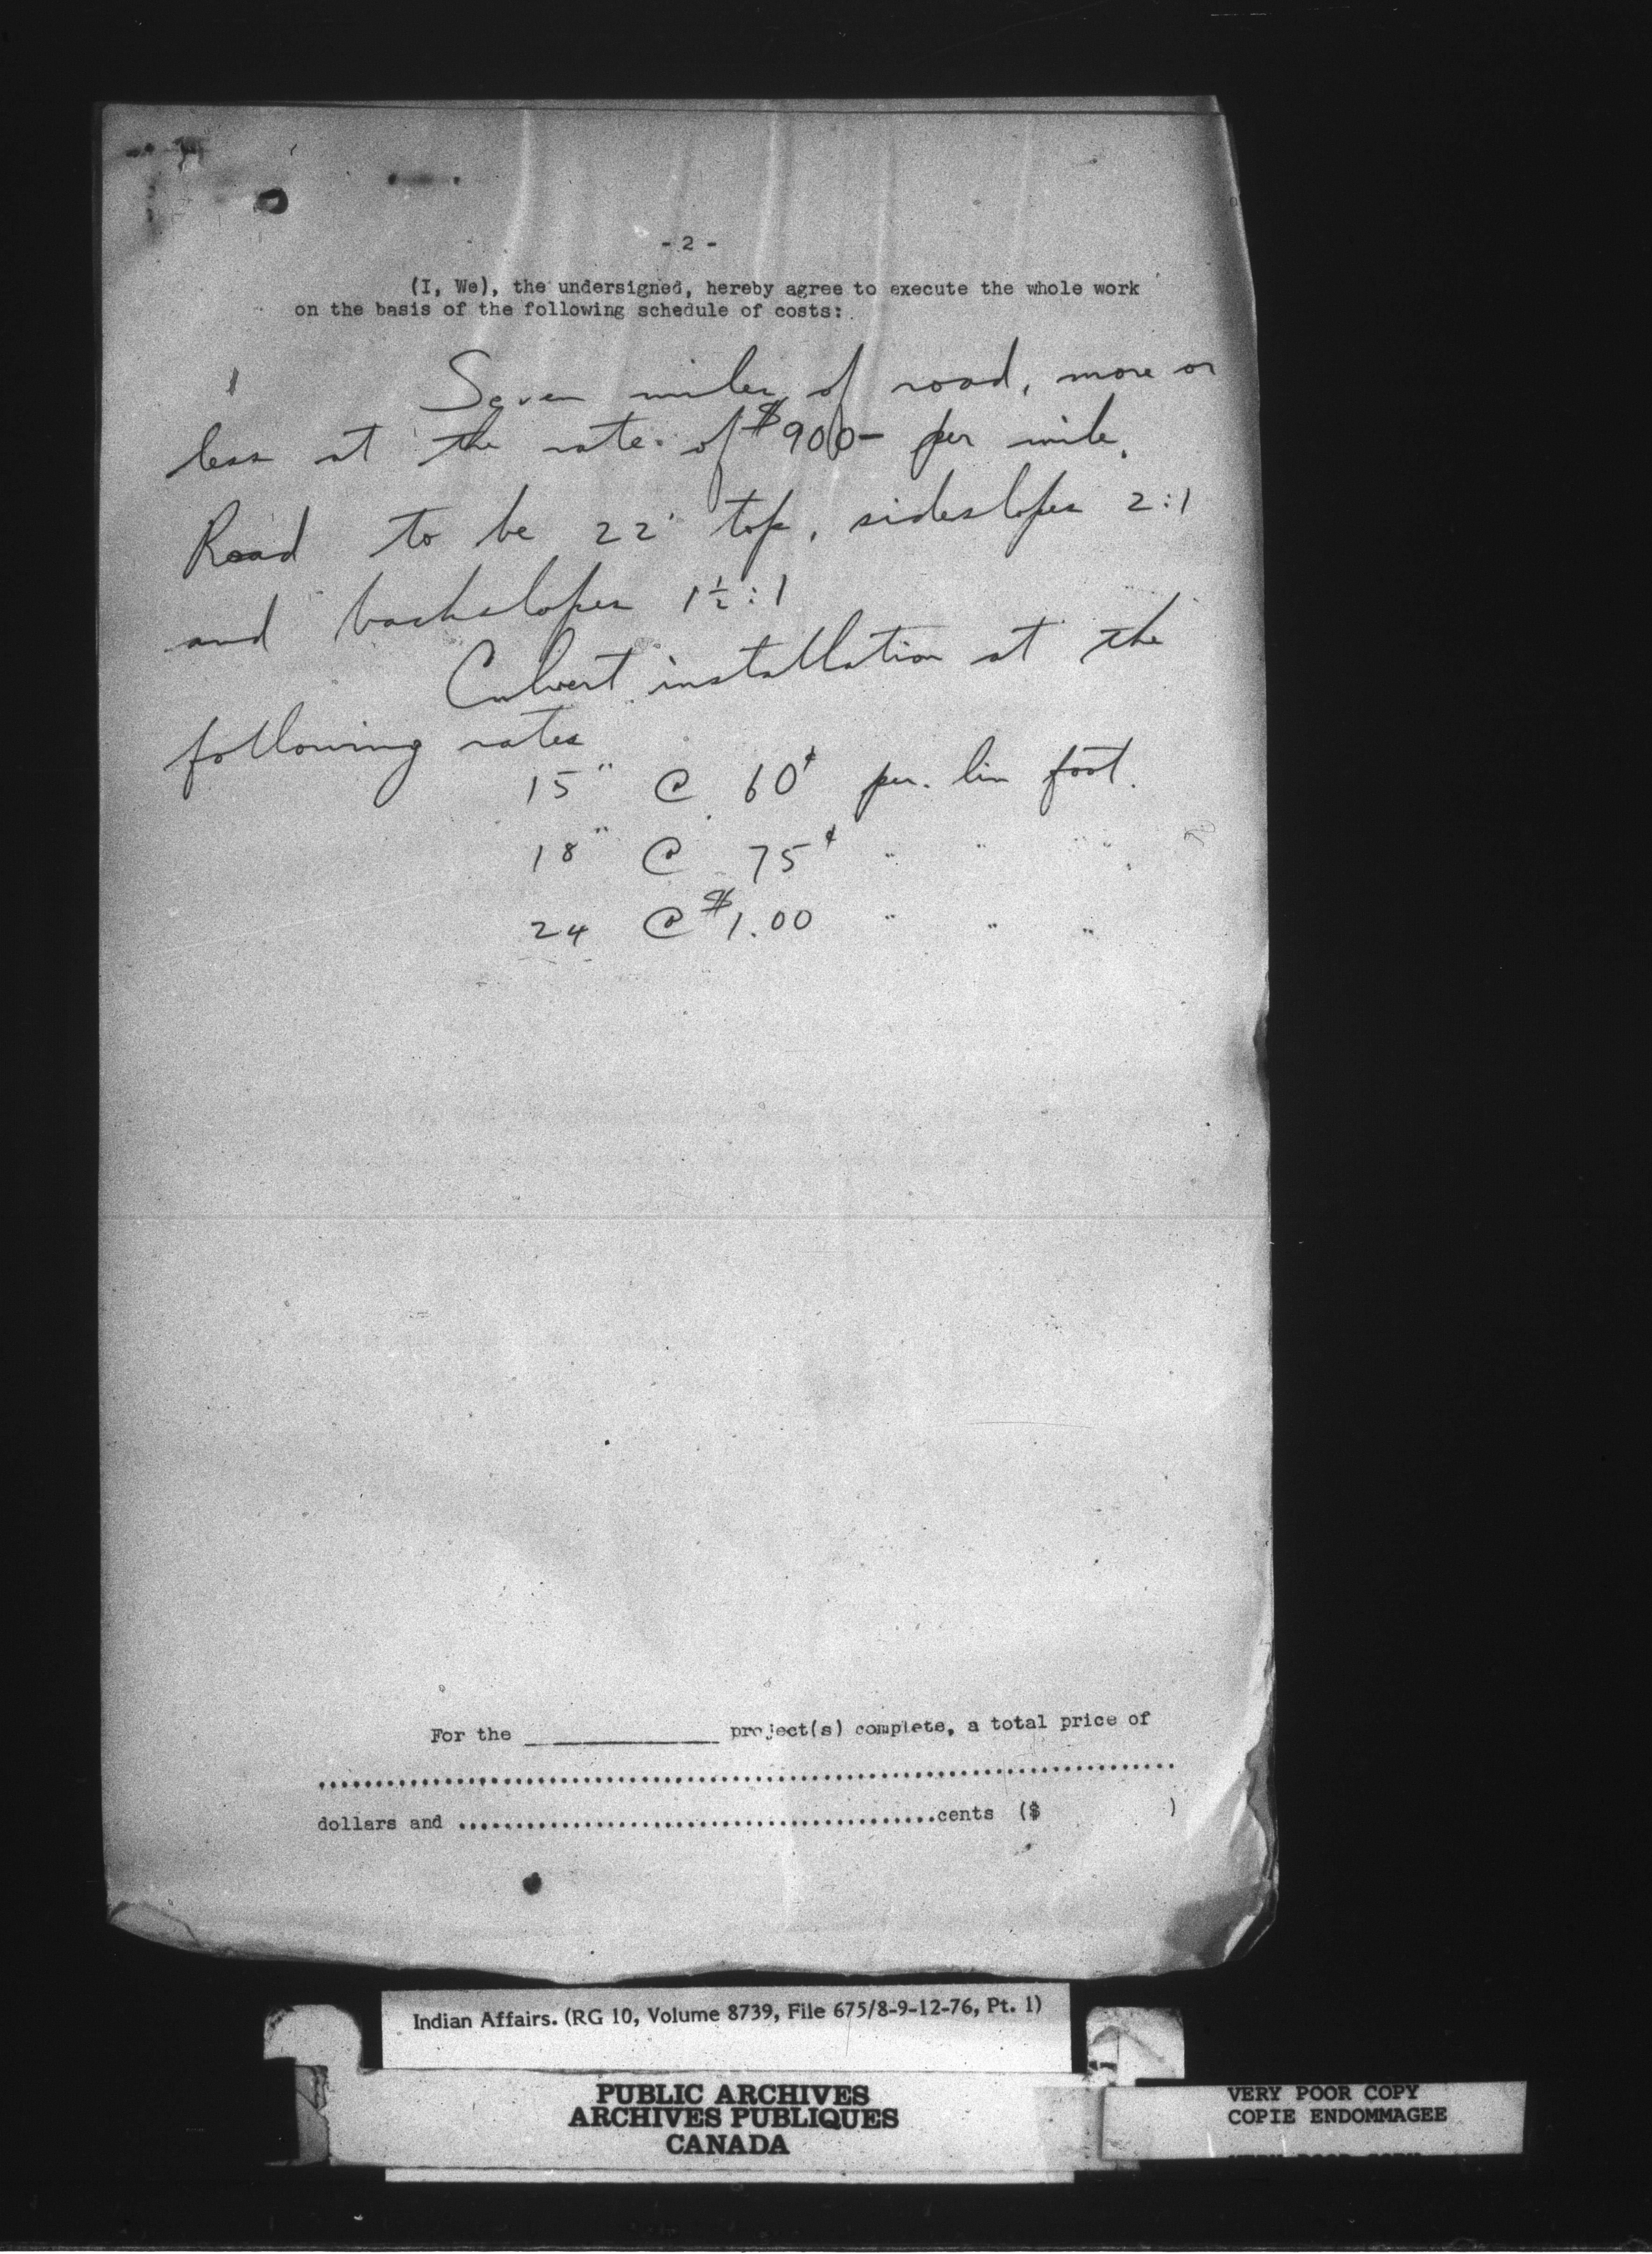 - 2 -
(I, We), the undersigned, hereby agree to execute the whole work
on the basis of the following schedule of costs:
Seven miles of road, more or
less at the rate of $900- per mile.
Road to be 22' top, sideslopes 2:1
and backslopes 1½:1
Culvert installation at the
following rates
15" @ 60¢ per. lin foot.
18" @ 75¢ " " "
24 @ $1.00 " " "
For the ____________ project(s) complete, a total price of
........................................................................
dollars and ........................................cents ($ )
Indian Affairs. (RG 10, Volume 8739, File 675/8-9-12-76, Pt. 1)
PUBLIC ARCHIVES
ARCHIVES PUBLIQUES
CANADA
VERY POOR COPY
COPIE ENDOMMAGEE